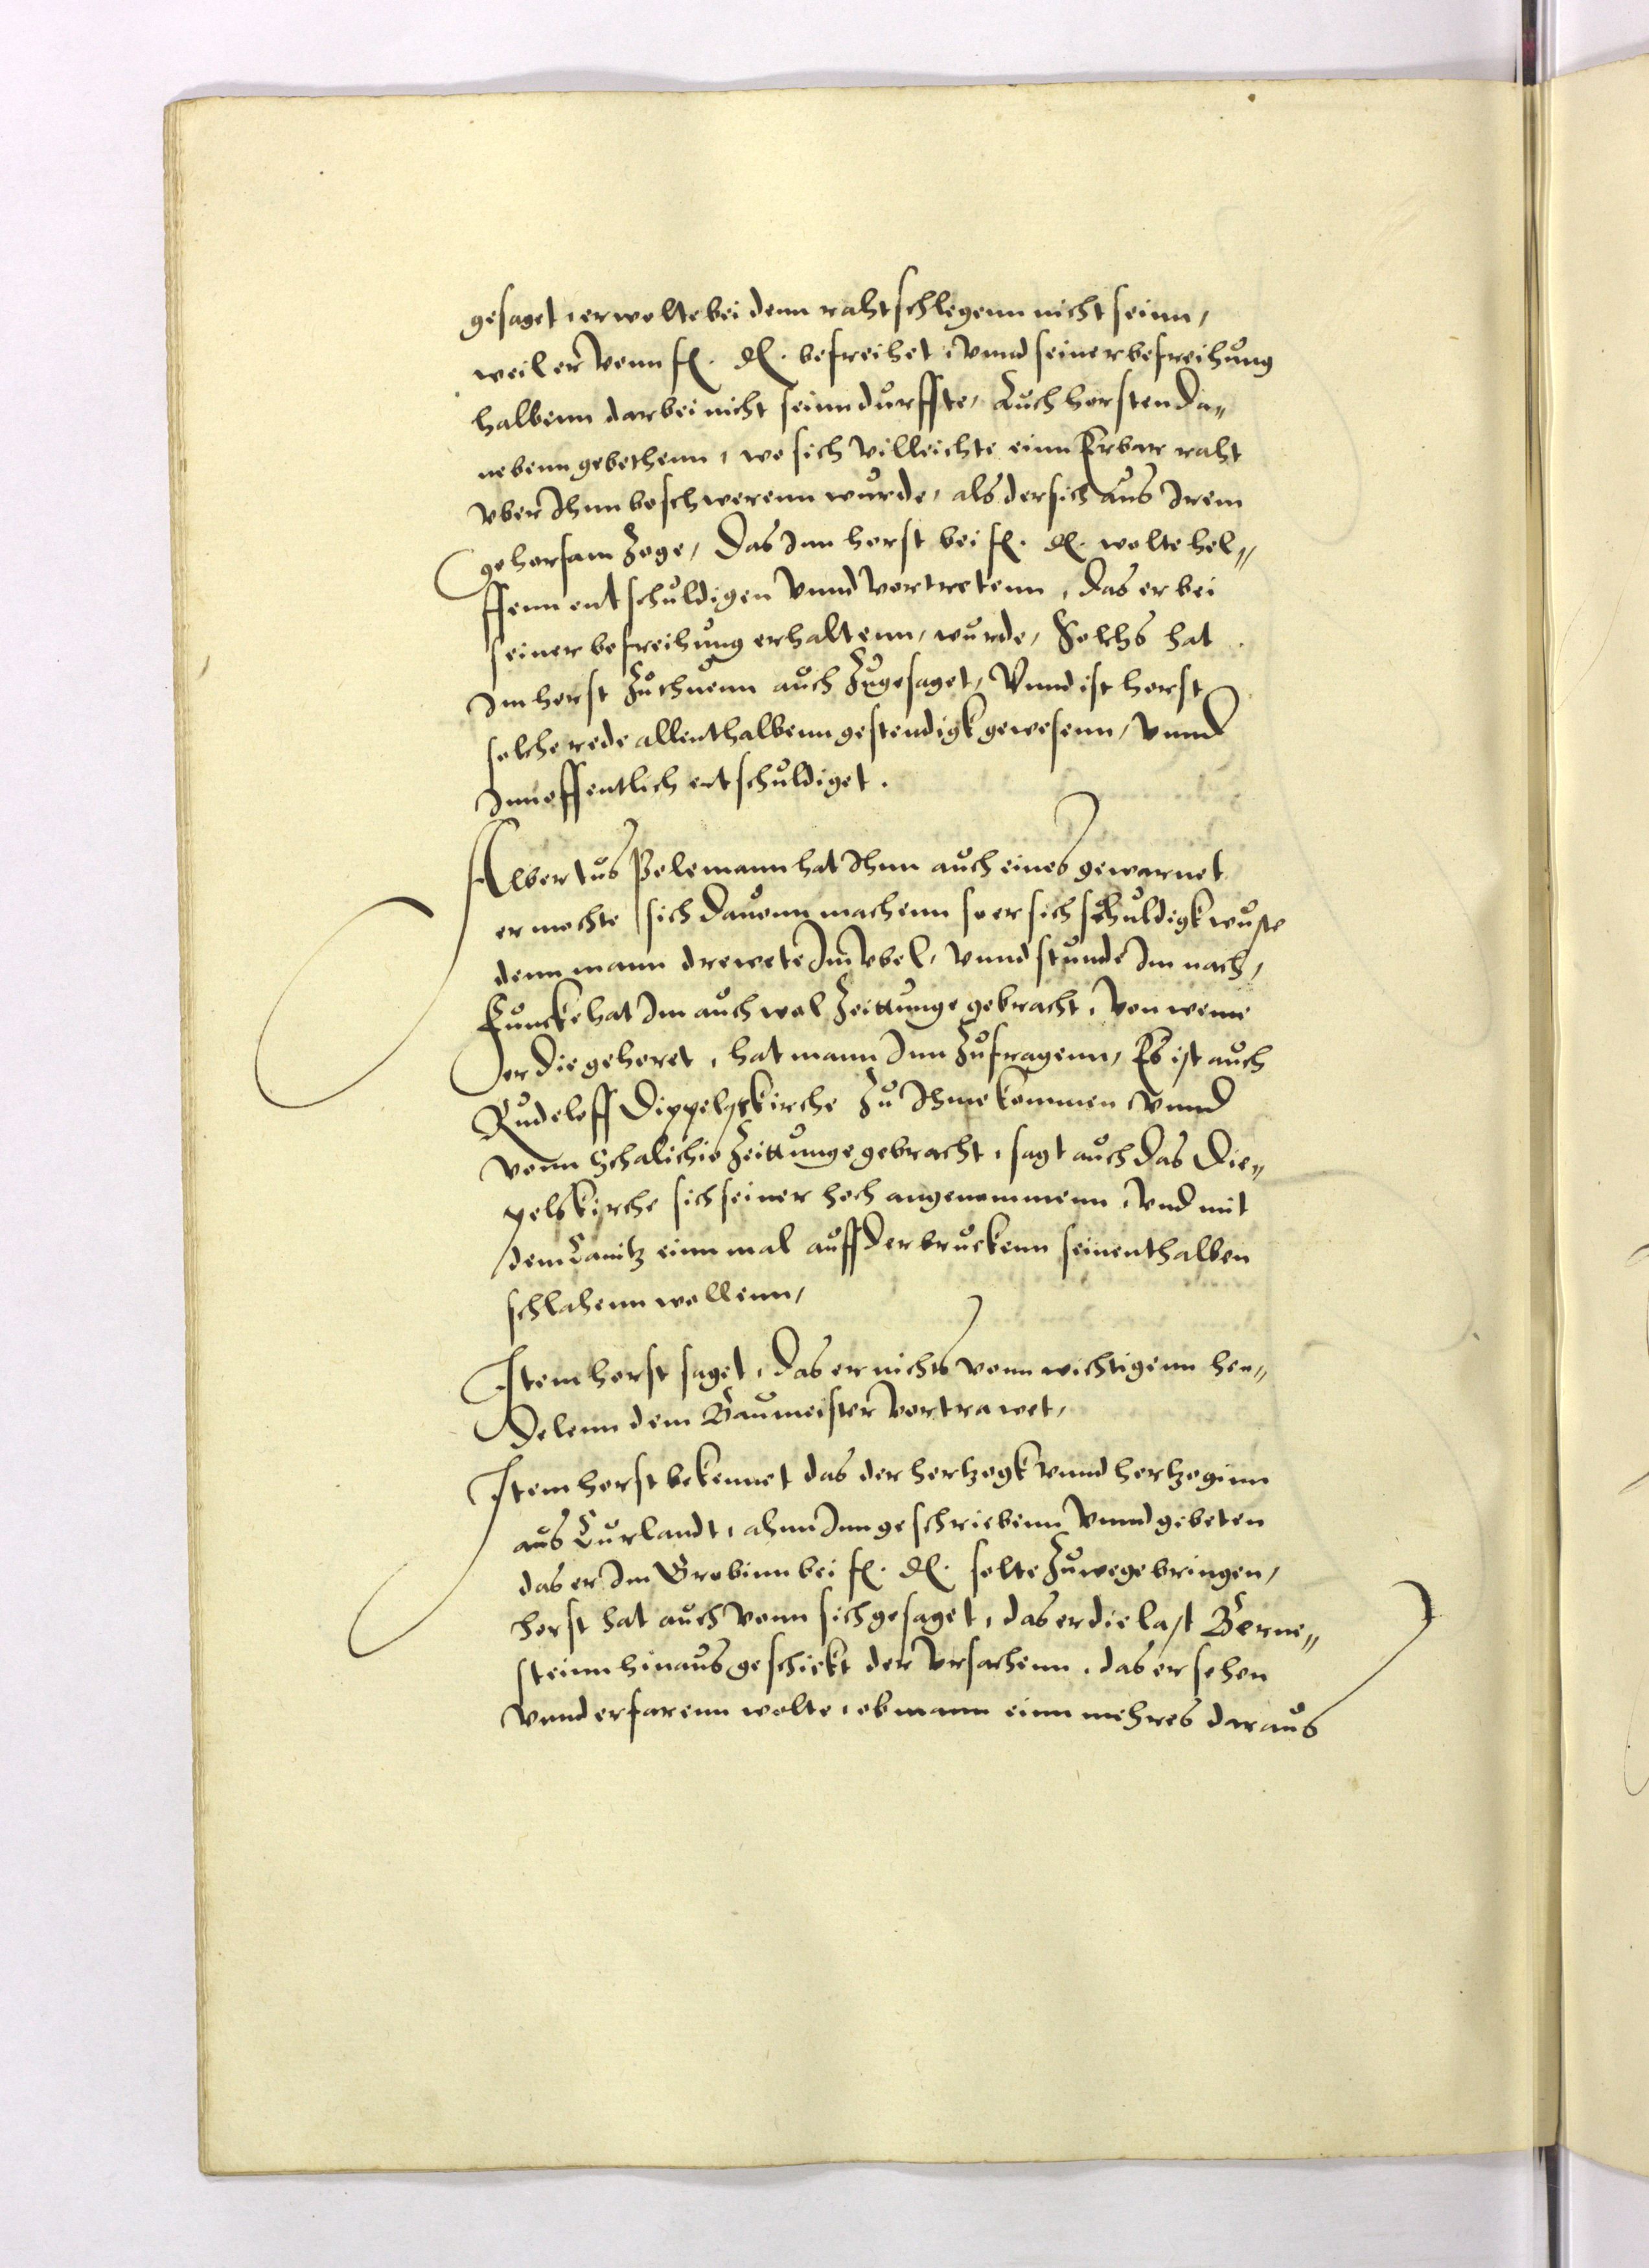 gesaget, er wolte bei denn rahtschlegenn nicht seinn,
weil er vonn f. d. befreihet, vnnd seiner befreihung
halbenn darbei nicht seinn durffte, Auch horsten da„
nebenn gebethenn, wo sich villeichte einn Erbar raht
vber Ihnn beschwerenn wurde, als der sich aus Irem
gehorsam zoge, Das Inn horst bei f. d. wolte hel„
ffenn entschuldigen vnnd vertretenn, das er bei
seiner befreihung erhaltenn, wurde, Solchs hat
Im horst zuthuenn auch zugesaget, Vnnd ist horst
solche rede allenthalbenn gestendigk gewesenn, vnnd
Inn offentlich entschuldiget.
Albertus Polemann hat Ihnn auch eines gewarnet
er mochte sich dauonn machenn so er sich schuldigk wuste
denn mann drewete Im vbel, vnnd stunde Im nach,
Funcke hat Im auch wol Zeittunge gebracht, von weme
er die gehoret, hat mann Inn zufragenn, Es ist auch
Rudeloff Dippelskirche zu Ihme kommen vnnd
vonn Schalichio Zeittunge gebracht, sagt auch das Die„
pelskirche sich seiner hoch angenommenn, vnd mit
dem Canitz einn mal auff der bruckenn seinenthalben
schlahenn wollenn,
Item horst saget, das er nichts vonn wichtigenn hen„
delenn dem Baumeister vertrawet,
Item horst bekennet das der hertzogk vnnd hertzoginn
aus Curlandt, ahnn Inn geschriebenn vnnd gebeten
das er Im Grobinn bei f. d. solte zuwege bringen,
horst hat auch vonn sich gesaget, das er die last Berne„
steinn hinaus geschickt der vrsachenn, das er sehen
vnnd erfarenn wolte, ob mann einn mehres daraus